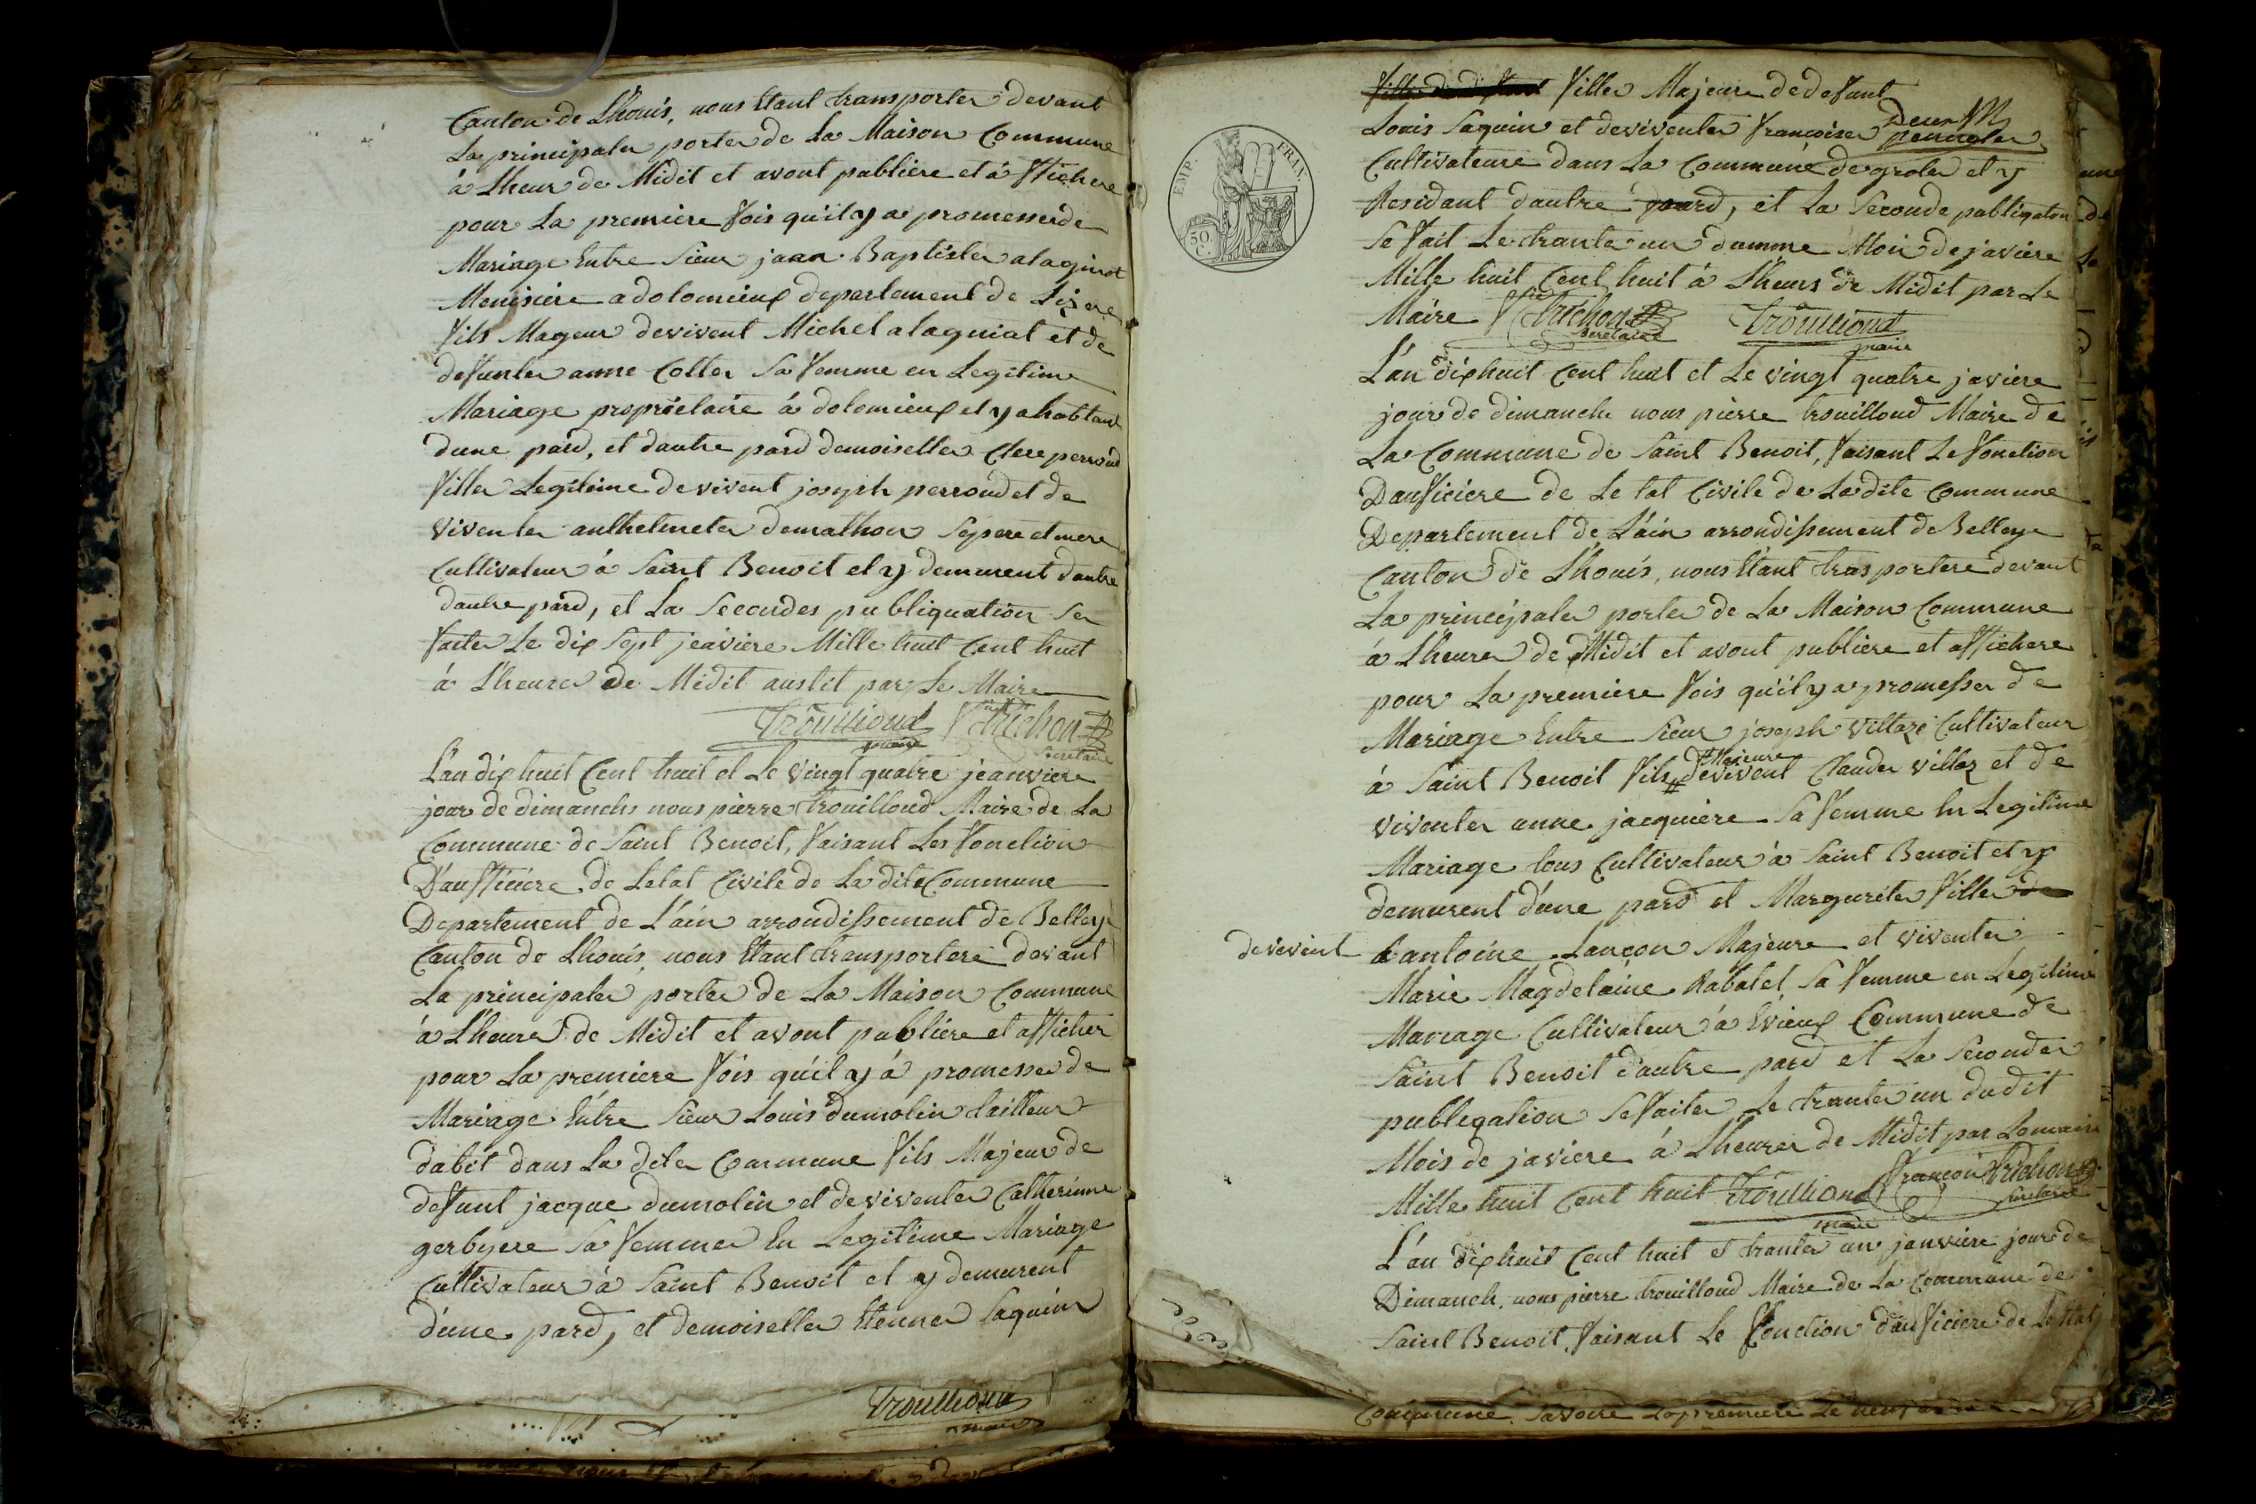 Canton de Lhouis, nous Etant transporter devant
La principaler porter de La Maison Commune
à Lheur de Midit et avont publiere et à ffichere
pour La premiere fois qu'il y a promesser de
Mariage Entre Sieur jaan Baptister alaginot
Menisiere a dolomieux departement de Lizere
fils Mageur devivent Michel alaguiat et de
defunter anne Colter Sa femme en Legitime
Mariage proprietaire à dolomieux et y ahabtant
dune pard, et dautre pard demoiseller Clere perroud
filler Legitime de vivent joseph perroud et de
viventer anthelmeter demathon Sepere et mere
Cultivateur à Saint Benoit et y demeurent dautre
dautre pard, et La Secondes publiquation Se
faiter Le dix Sept jeaviere Mille huit Cent huit
à Lheurer de Midit austit par Le Maire
Trouilloud Trichon
maire Secretaire
L'an dix huit Cent huit et Le vingt quatre jeanviere
jour de dimanche nous pierre Trouilloud Maire de La
Commune de Saint Benoit, faisant Les fonction
D'aufficiere de Letat Civile de La dite Commune
Departement de L'ain arrondissement de Belley
Canton de Lhouis, nous Etant transportere devant
La principaler porter de La Maison Commune
à Lheurer de Midit et avont publiere et afficher
pour La premiere fois qu'il y à promesser de
Mariage Entre Sieur Louis dumolin tailleur
dabit dans La diter Commune fils Majeur de
defunt jacque dumolin et de viventer Catherinne
gerbyere Sa femmer En Legitime Mariage
Cultivateur à Saint Benoit et y demurent
d'une pard, et demoiseller Etenner Saquin
Trouilloud
maire
filler Majeure de defunt
Louis Saquin et deviventer francoiser
Cultivateure dans La Commune de groler et y
Residant dautre pard, et La Seconde publiqaton
Se fait Le tranter un dumme Moi de javiere
Mille huit Cent huit à Lheurs de Midit par Le
Maire Trichon Trouilloud
Secretaire maire
L'an dix huit Cent huit et Le vingt quatre javiere
jour de dimanche nous pierre trouilloud Maire de
La Commune de Saint Benoit, faisant Le fonction
Daufficiere de Le tat Civile de La dite Commune
Departement de L'ain arrondissement de Belleye
Canton de Lhouis, nous Etant trasportere devant
La principaler porter de La Maison Commune
à Lheurer de Midit et avont publiere et affichere
pour La premiere fois qu'il y a promesser de
Mariage Entre Sieur joseph villaze Cultivateur
Majeure
à Saint Benoit fils # devivent Clauder villaz et de
viventer anne jacquiere Sa femme En Legitime
Mariage tous Cultivateur à Saint Benoit et y
demurent d'une pard et Margariter filler de
devivent antoine Lançon Majeure et viventer
Marie Magdelaine Rabatel Sa femme en Legitime
Mariage Cultivateur à Evieux Commune de
Saint Benoit d'autre pard et La Seconder
publegation Se faiter Le tranter un dudit
Mois de javiere à Lheurer de Midit par Lemaire
Mille huit Cent huit Trouilloud francois Trichon
maire Secretaire
L'an dix huit Cent huit et tranter un janviere jour de
Dimanch, nous pierre trouilloud Maire de La Commune de
Saint Benoit, faisant Le fonction d'aufficiere de Letat
Commune Savoire La premiere Le
EMP. FRAN.
50 C.